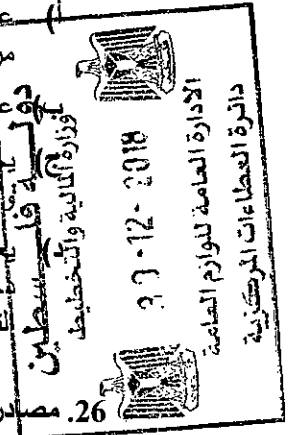 دولة فلسطين
وزارة المالية والتخطيط
30-12-2018
الادارة العامة للوازم العامة
دائرة العطاءات المركزية
26.